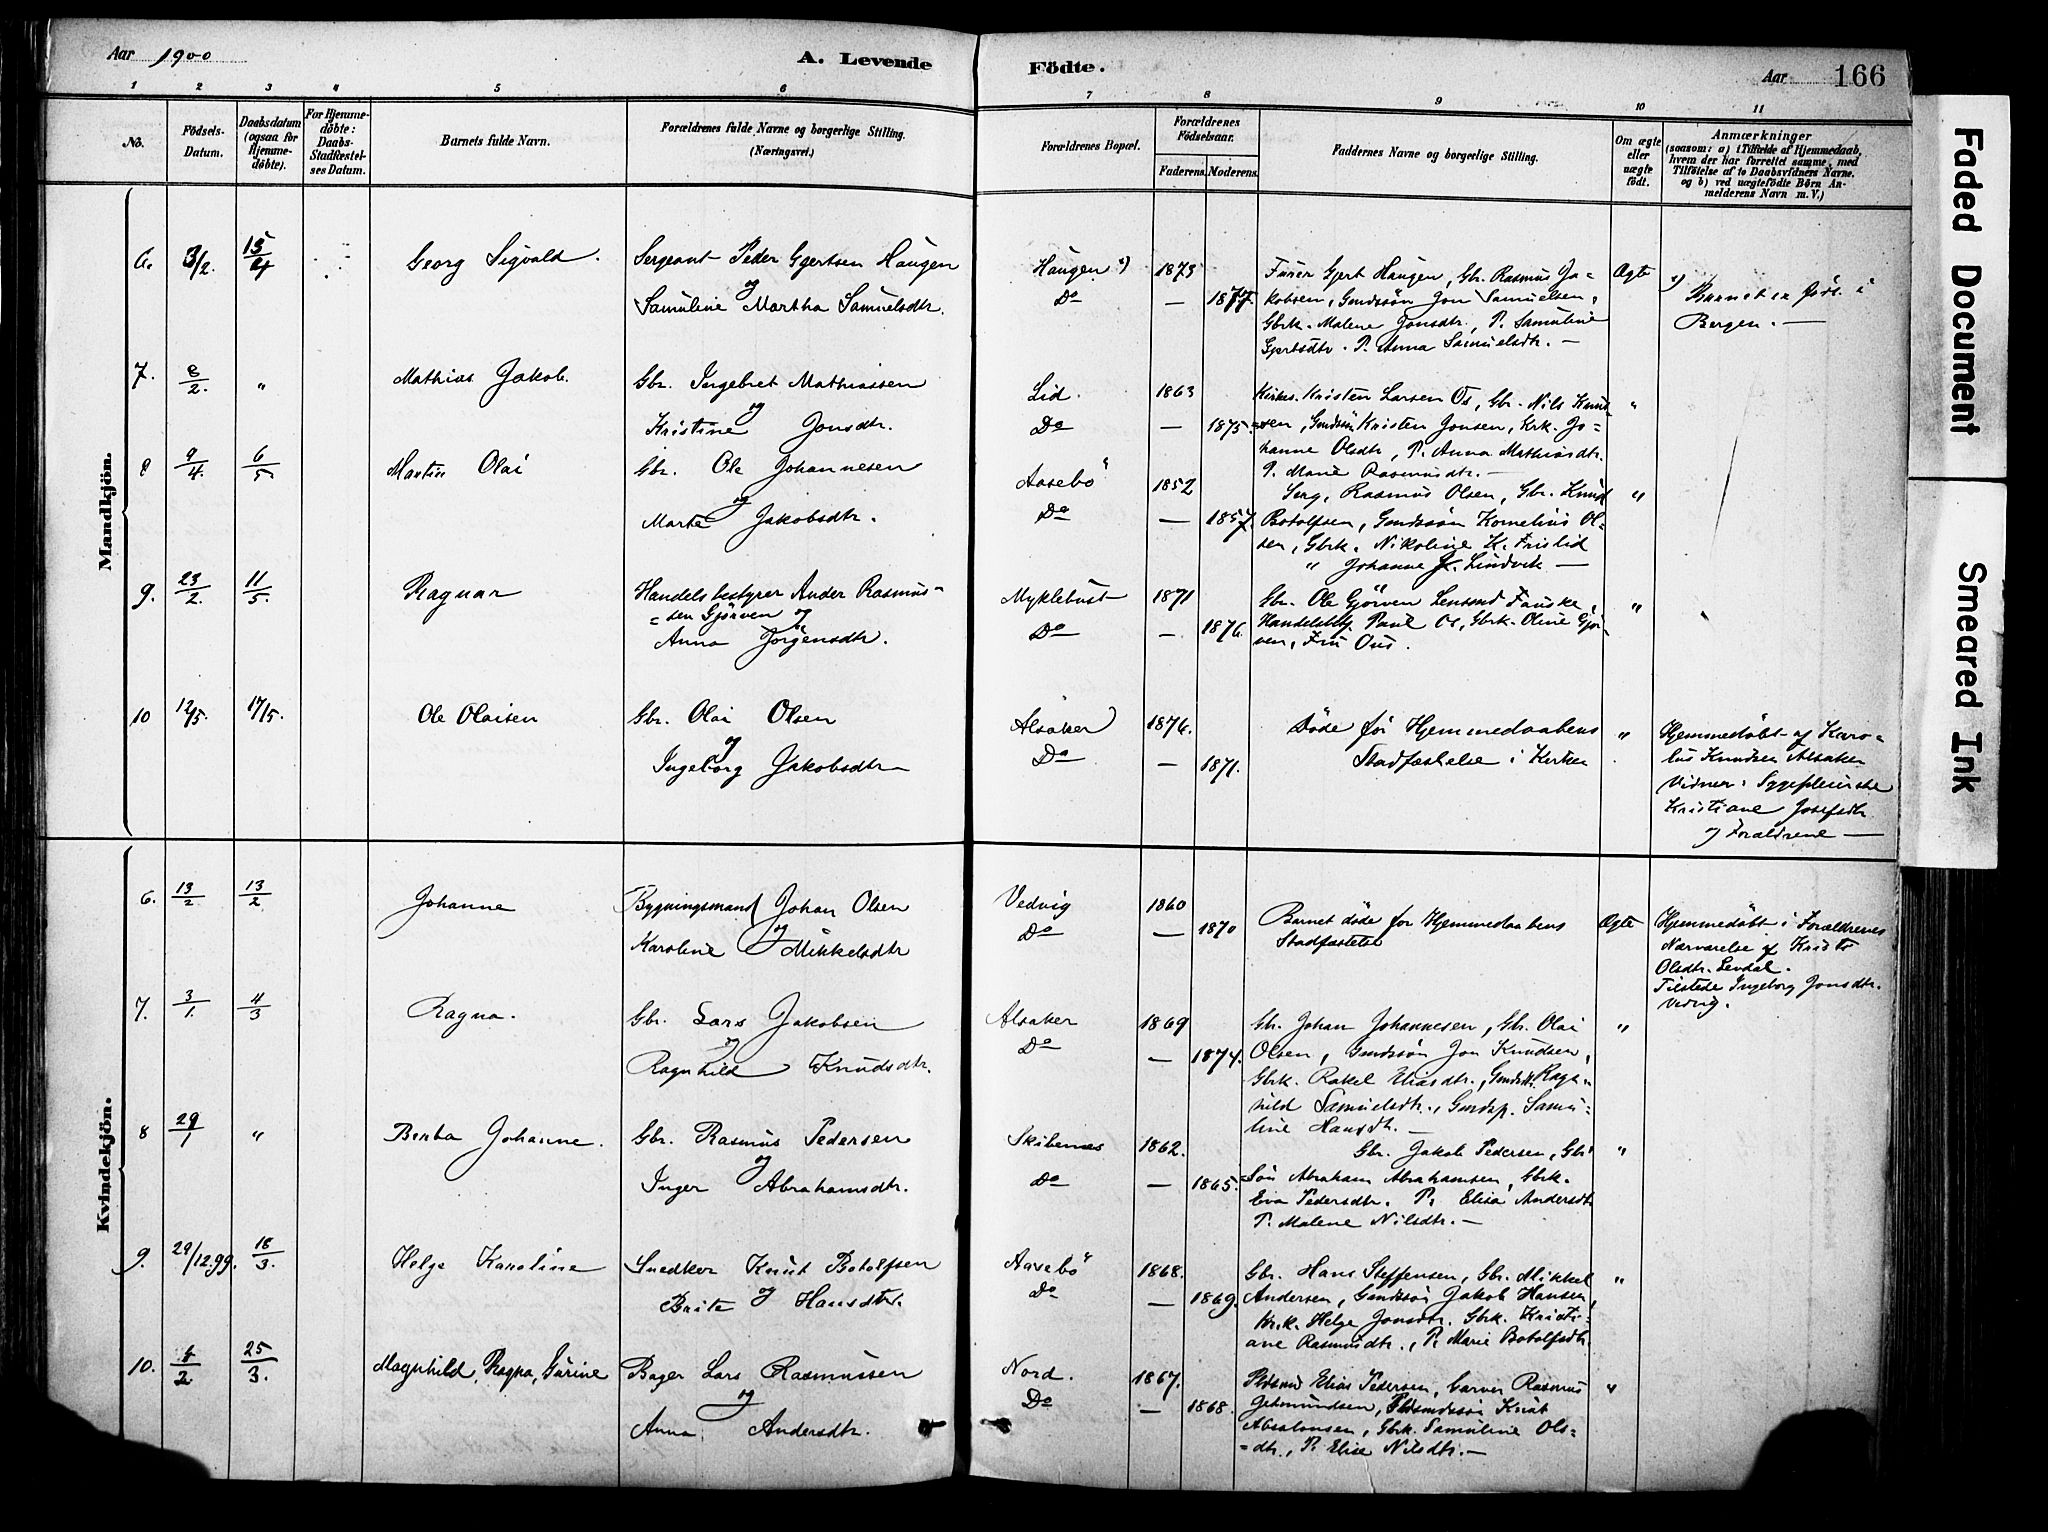 Aar 1900
A. Levende
Födte.
Aar 166
1 2 3 4 5 6 7 8 9 10 11
No.
Födsels-Datum.
Daabsdatum (ogsaa for Hjemme-döbte).
For Hjemme-döbte: Daabs-Stadfæstel-ses Datum.
Barnets fulde Navn.
Forældrenes fulde Navne og borgerlige Stilling.
(Næringsvei.)
Forældrenes Bopæl.
Forældrenes Födselsaar.
Faderens. Moderens.
Faddernes Navne og borgerlige Stilling.
Om ægte eller uægte födt.
Anmærkninger
(saasom: a) i Tilfælde af Hjemmedaab,
hvem der har forrettet samme, med
Tilföielse af to Daabsvidners Navne.
og b) ved uægtefödte Börn An-
melderens Navn m. V.)
Mandkjön.
6. 3/2. 15/4 Georg Sigvald. Sergeant Peder Gjertsen Haugen
og
Samuline Martha Samuelsdtr.
Haugen 1) 1873
Do — 1877.
Furer Gjert Haugen, Gbr. Rasmus Ja-
kobsen, Gmdssön Jon Samuelsen,
Gbrk. Malene Jonsdtr., P. Samuline
Gjertsdtr. P. Anna Samuelsdtr. —
Ægte
1) Barnet er föd. i
Bergen. —
7. 8/2. " Mathias Jakob. Gbr. Ingebret Mathiassen
og
Kristine Jonsdtr.
Lid. 1863
Do — 1875.
Kirkes. Kristen Larsen Os, Gbr. Nils Knud-
sen, Gmdssön Kristen Jonsen, Krk. Jo-
hanne Olsdtr, P. Anna Mathiasdtr.
P. Marie Rasmusdtr. —
"
8 9/4. 6/5 Martin Olai Gbr. Ole Johannesen
og
Marta Jakobsdtr.
Aasebö 1852
Do — 1857.
Serg. Rasmus Olsen, Gbr. Knud
Botolfsen, Gmdssön Kornelius Ol-
sen, Gbrk. Nikoline K. Fristid
" Johanne Lindvik —
"
9. 23/2. 11/5. Ragnar Handelsbestyrer Ander Rasmus-
sen Gjörven og
Anna Jörgensdtr.
Myklebust 1871
Do — 1876.
Gbr. Ole Gjörven Lensmd Fauske,
Handelsbtj. Paul Os, Gbrk. Oline Gjör-
ven, Fru Ous.
"
10 12/5. 17/5. Ole Olaisen Gbr. Olai Olsen
og
Ingeborg Jakobsdtr
Alsaker 1876.
Do — 1871.
Döde för Hjemmedaabens
Stadfæstelse i Kirken
"
Hjemmedöbt af Karo-
lus Knudsen Alsaker
Vidner: Sygepleierske
Kristiane Josefsdtr
og Forældrene —
Kvindekjön.
6. 13/2 13/2 Johanne Bygningsmand Johan Olsen
og
Karoline Mikkelsdtr
Vedvig 1860
Do — 1870
Barnet döde for Hjemmedaabens
Stadfæstelse
Ægte
Hjemmedöbt i Forældrenes
Nærværelse af Kristi
Olsdtr. Levdal.
Tilstede Ingeborg Jonsdtr.
Vedvig.
7. 3/1. 4/3 Ragna. Gbr. Lars Jakobsen
og
Ragnhild Knudsdtr.
Alsaker 1869
Do — 1874.
Gbr. Johan Johannesen, Gbr. Olai
Olsen, Gmdssön Jon Knudsen,
Gbrk. Rakel Eliasdtr., Gmdsk. Ragn-
hild Samuelsdtr., Gmdsp. Samu-
line Hansdtr. —
"
8 29/1 " Berta Johanne. Gbr. Rasmus Pedersen
og
Inger Abrahamsdtr.
Skibenes 1862.
Do — 1865.
Gbr. Jakob Pedersen, Gbr
Sön Abraham Abrahamsen, Gbrk.
Eva Pedersdtr. P. Elisa Andersdtr.
P. Malene Nilsdtr. —
"
9. 29/12.99. 18/3. Helga Karoline Snedker Knut Botolfsen
og
Brita Hansdtr.
Aasebö 1868.
Do — 1869.
Gbr. Hans Steffensen, Gbr. Mikkel
Andersen, Gmdssön Jakob Hansen,
Krk. Helge Jonsdtr. Gbrk. Kristi-
ane Rasmusdtr., P. Marie Botolfsdtr.
"
10. 4/2 25/3. Magnhild Ragna, Gurine Bager Lars Rasmussen
og
Anna Andersdtr.
Nord. 1867.
Do — 1868.
Pldsmd Elias Pedersen, Garver Rasmus
Gudmundsen, Plsmdssön Knut
Absalonsen, Gbrk. Samuline Ols-
dtr., P. Elise Nilsdtr. —
"
Faded Document
Smeared Ink